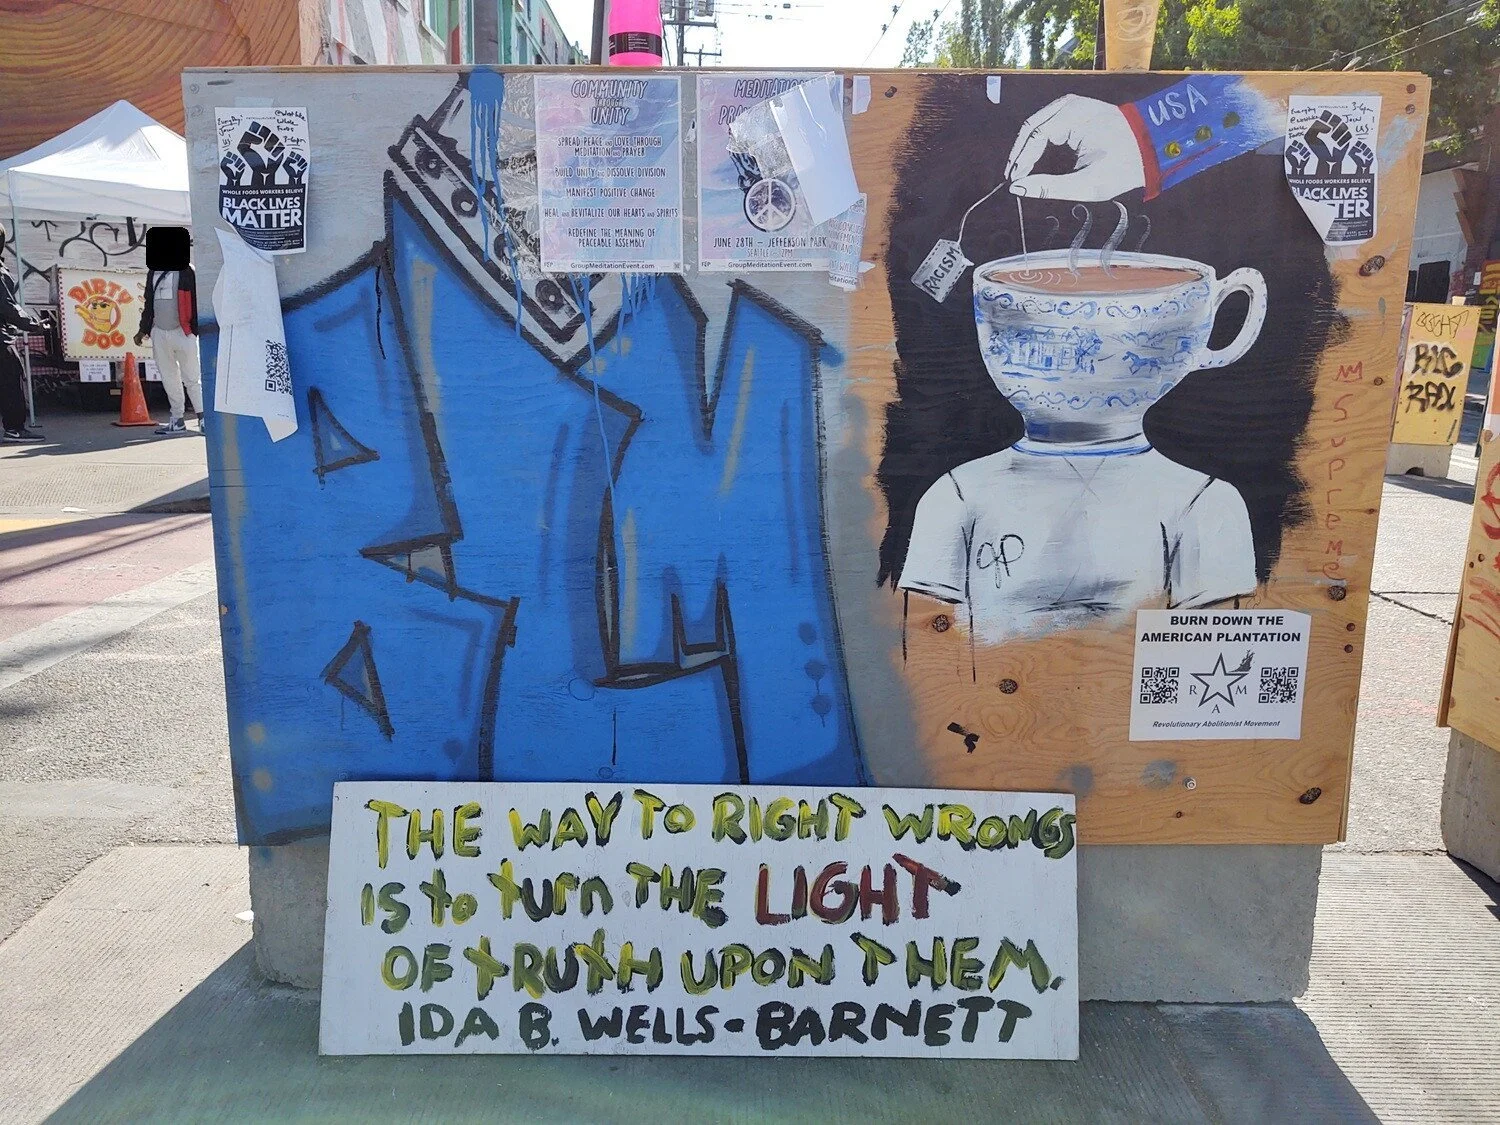 COMMUNITY
THROUGH
UNITY
SPREAD PEACE AND LOVE THROUGH
MEDITATION AND PRAYER
BUILD UNITY AND DISSOLVE DIVISION
MANIFEST POSITIVE CHANGE
HEAL AND REVITALIZE OUR HEARTS AND SPIRITS
REDEFINE THE MEANING OF
PEACEABLE ASSEMBLY
GroupMeditationEvent.com
MEDITATION
JUNE 28TH – JEFFERSON PARK
GroupMeditationEvent.com
WHOLE FOODS WORKERS BELIEVE
BLACK LIVES
MATTER
DIRTY
DOG
BLM
USA
RACISM
Everyday
3-6pm
Join
us
WHOLE FOODS WORKERS BELIEVE
BLACK LIVES
TER
Supreme
BURN DOWN THE
AMERICAN PLANTATION
R A M
Revolutionary Abolitionist Movement
THE WAY TO RIGHT WRONGS
IS to turn THE LIGHT
OF TRUTH UPON THEM.
IDA B. WELLS-BARNETT